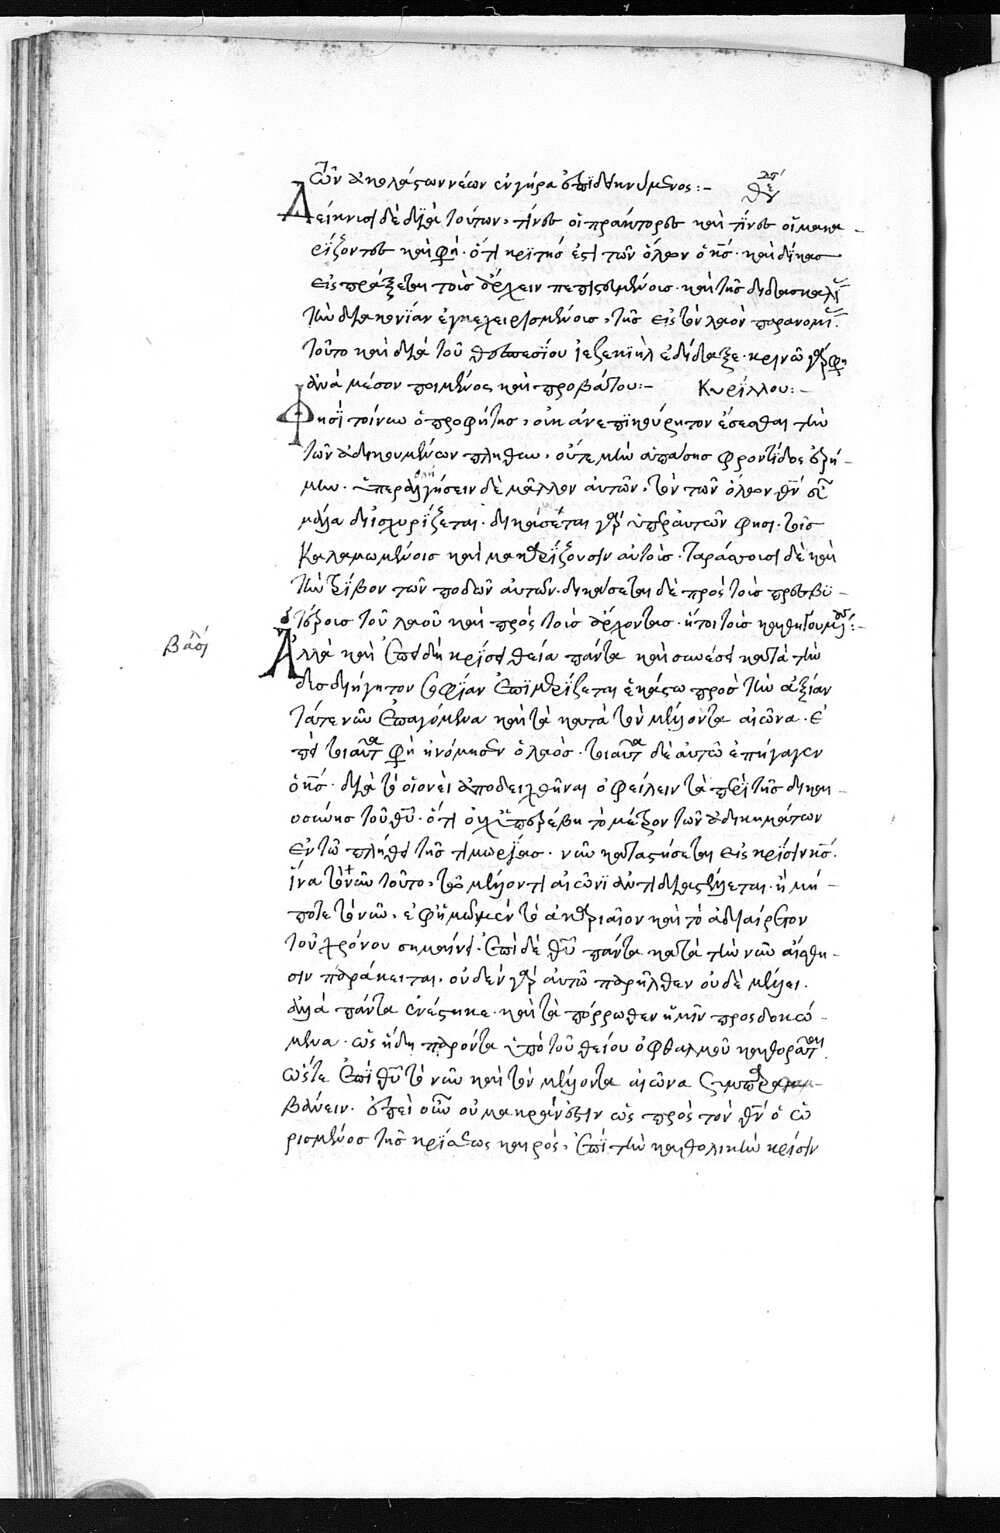 τῶν ἀκολάστων νέων ἐν γήρα ἐπιδεικνύμενος:–
Δείκνυσι δὲ διὰ τούτων, τίνες οἱ πράκτορες καὶ τίνες οἱ μακα–
ρίζοντες καὶ φη. ὅτι κριτής ἐστι τῶν ὅλων ὁ κς. καὶ δίκας
εἰς πράξεται τοὺς ἄρχειν πεπιστευμένους. καὶ τῆς διδασκαλι
τὴν διακονίαν ἐγκεχειρισμένους, τῆς εἰς τὸν λαὸν παρανομι.
τοῦτο καὶ διὰ τοῦ θεσπεσίου ἰεζεκιὴλ ἐδίδαξε. κρινῶ γάρ φη
ἀνὰ μέσον ποιμένος καὶ προβάτου:– Κυρίλλου:–
Φησὶ τοίνυν ὁ προφήτης, οὐκ ἀνεπικούρητον ἔσεσθαι τὴν
τῶν ἀδικουμένων πληθὺν, οὔτε μὴν ἁπάσης φροντίδος ἐρή–
μην. ὑπεραλγήσειν δὲ μᾶλλον αὐτῶν, τὸν τῶν ὅλων θν
μάλα διϊσχυρίζεται. δικάσεται γὰρ ὑπὲρ αὐτῶν φησι. τοῖς
καλαμωμένοις καὶ μακαρίζουσιν αὐτοὺς. ταράσσουσι δὲ καὶ
τὴν τρίβον τῶν ποδῶν αὐτῶν. δικάσεται δὲ πρὸς τοὺς πρεσβυ–
τέρους τοῦ λαοῦ καὶ πρὸς τοὺς ἄρχοντας. ἤτοι τοὺς καθηγουμένους:–
βασι Ἀλλὰ καὶ ἐπειδὴ κρίσει θεία πάντα καὶ συνέσει κατὰ τὴν
δυσδιήγητον σοφίαν ἐπιμερίζεται ἑκάστω πρὸς τὴν ἀξίαν
τά τε νῦν ἐπαγόμενα καὶ τὰ κατὰ τὸν μέλλοντα αἰῶνα. ἐ
πεὶ τοιαῦτα φη ἠνόμησεν ὁ λαὸς. τοιαῦτα δὲ αὐτῶ ἐπήγαγεν
ὁ κς. διὰ τὸ οἱονεὶ ἀποδειχθῆναι ὀφείλειν τὰ περὶ τῆς δικαι–
οσύνης τοῦ θυ. ὅτι οὐχ ὑπερέβη τὸ μέτρον τῶν ἀδικημάτων
ἐν τῶ πλήθει τῆς τιμωρίας. νῦν καταστήσεται εἰς κρίσιν κς.
ἵνα τὸ νῦν τοῦτο, τῶ μέλλοντι αἰῶνι ἀντιδιαστέλλεται. ἢ μή–
ποτε τὸ νῦν, ἐφ' ἡμῶν μὲν τὸ ἀκαριαῖον καὶ τὸ ἀδιαίρετον
τοῦ χρόνου σημαίνει. ἐπὶ δὲ θυ πάντα κατὰ τὴν νῦν αἴσθη–
σιν παράκειται. οὐδὲν γὰρ αὐτῶ παρῆλθεν οὐδὲ μέλλει.
ἀλλὰ πάντα ἐνέστηκε. καὶ τὰ πόρρωθεν ἡμῖν προσδοκώ–
μενα. ὡς ἤδη παρόντα ὑπὸ τοῦ θείου ὀφθαλμοῦ καθορᾶται.
ὥστε ἐπὶ θυ τὸ νῦν καὶ τὸν μέλλοντα αἰῶνα συμπαραλαμ–
βάνειν. ἐπεὶ οὖν οὐ μακράν ἐστιν ὡς πρὸς τὸν θν ὁ ὡ
ρισμένος τῆς κρίσεως καιρὸς, ἐπὶ τὴν καθολικὴν κρίσιν